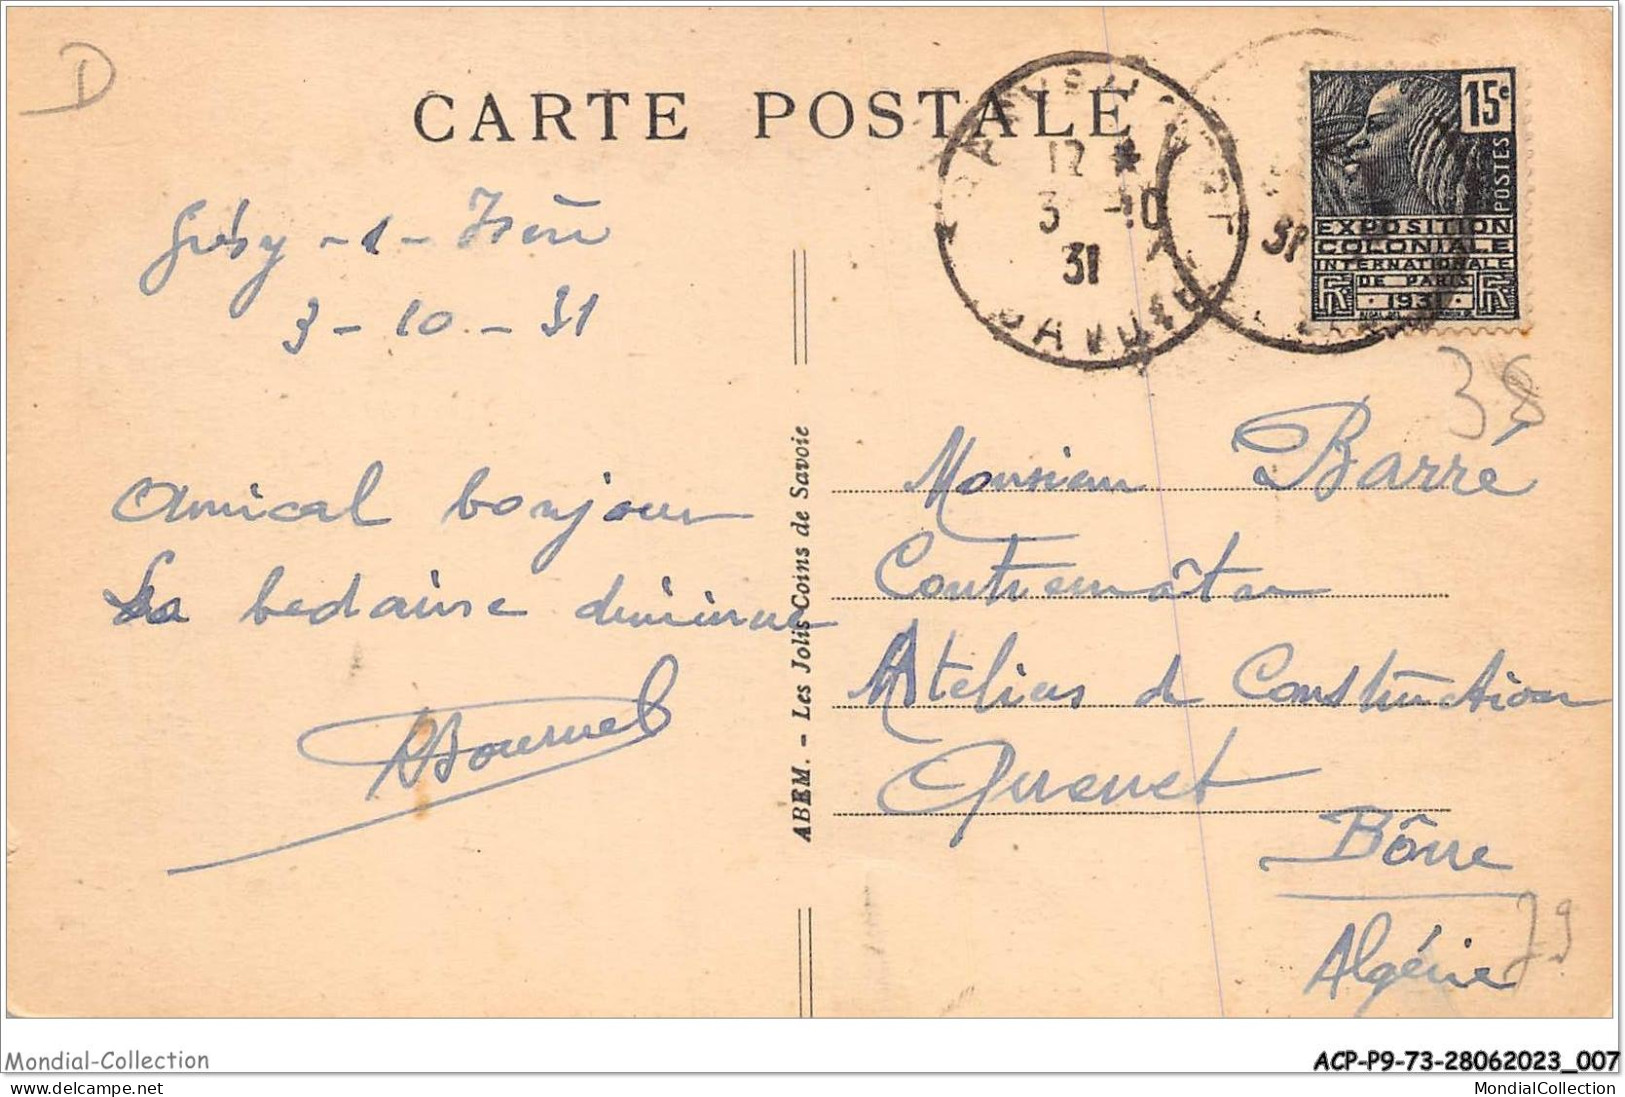 D
CARTE POSTALE
15c
POSTES
EXPOSITION
COLONIALE
INTERNATIONALE
DE PARIS
1931
RF RF
12 *
3 -10
31
SAVOIE
Grésy - s - Isère
3 - 10 - 31
38
Amical bonjour
La bedaine diminue
Bournel
ABEM. - Les Jolis Coins de Savoie
Monsieur Barré
Contremaître
Ateliers de Construction
Quenet
Bône
Algérie
79
Mondial-Collection
www.delcampe.net
ACP-P9-73-28062023_007
MondialCollection